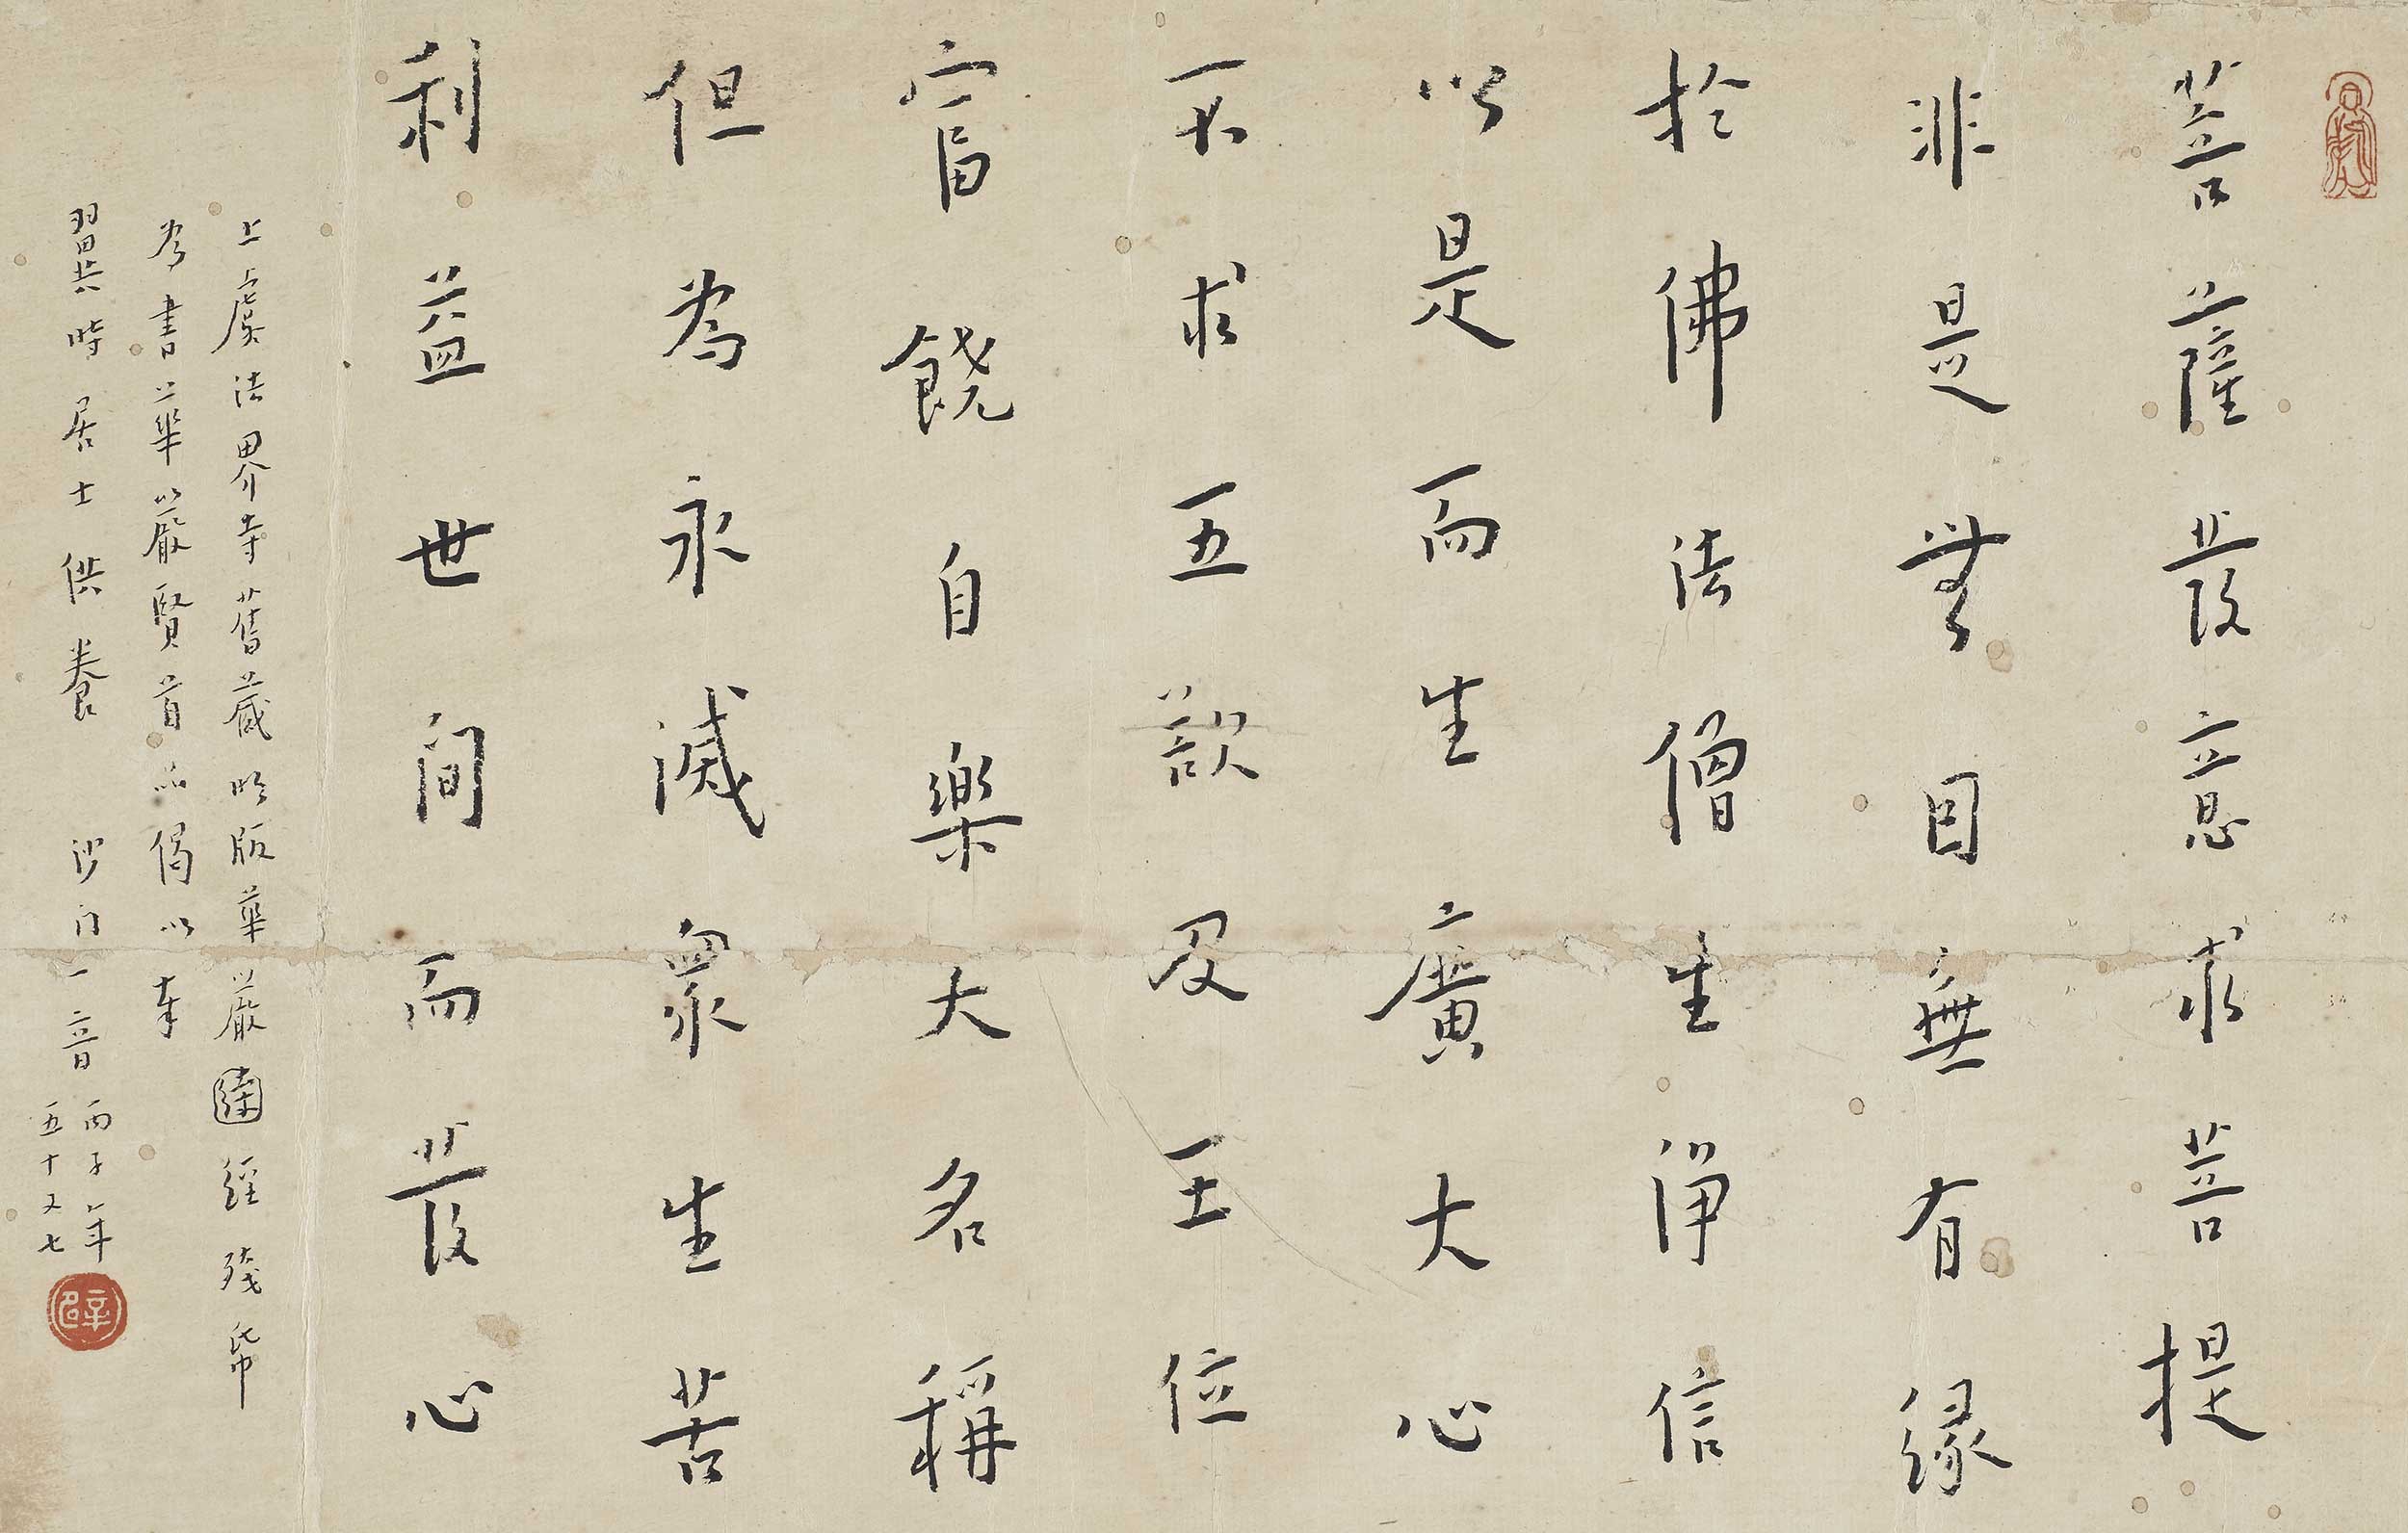 菩薩發意求菩提
非是無因無有緣
於佛法僧生淨信
以是而生廣大心
不求五欲及王位
富饒自樂大名稱
但為永滅眾生苦
利益世間而發心
上虞法界寺舊藏明版華嚴經殘帋
為書華嚴賢首品偈以奉
翼時居士供養 沙門一音 丙子年
五十又七